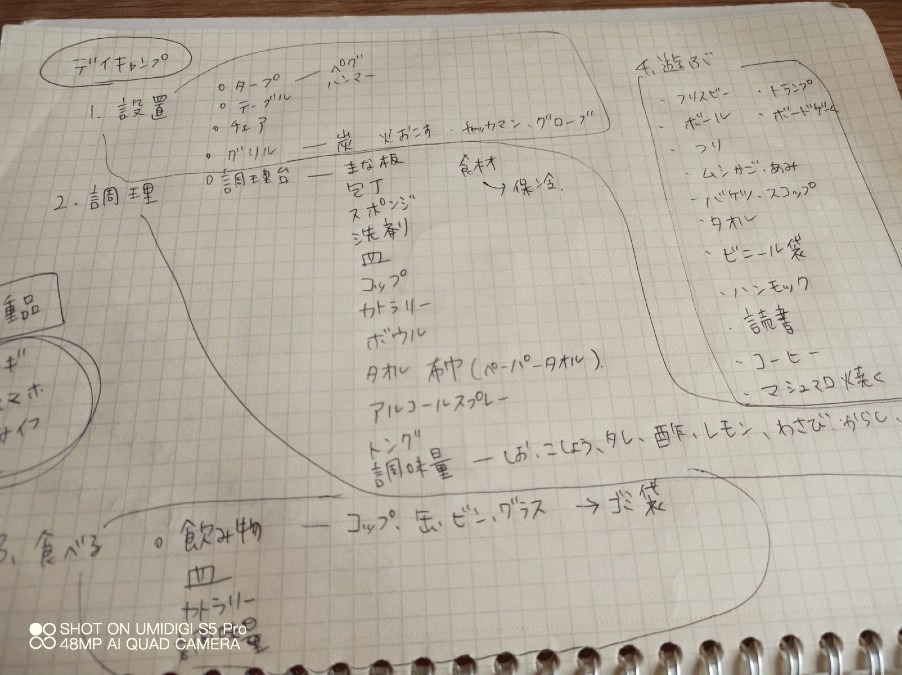 デイキャンプ
1. 設置
○ タープ ─ ペグ
ハンマー
○ テーブル
○ チェア
○ グリル ─ 炭 火おこす・チャッカマン、グローブ
2. 調理
○ 調理台 ─ まな板
包丁
スポンジ
洗剤
皿
コップ
カトラリー
ボウル
タオル 布巾(ペーパータオル)
アルコールスプレー
トング
調味量 ─ しお、こしょう、タレ、酢、レモン、わさび からし、
食材
→ 保冷
3. 食べる
○ 飲み物 ─ コップ、缶、ビン、グラス → ゴミ袋
皿
カトラリー
4. 遊ぶ
・フリスビー ・トランプ
・ボール ・ボードゲーム
・つり
・ムシかご、あみ
・バケツ、スコップ
・タオル
・ビニール袋
・ハンモック
・読書
・コーヒー
・マシュマロ焼く
重品
ギ
マホ
サイフ
SHOT ON UMIDIGI S5 Pro
48MP AI QUAD CAMERA